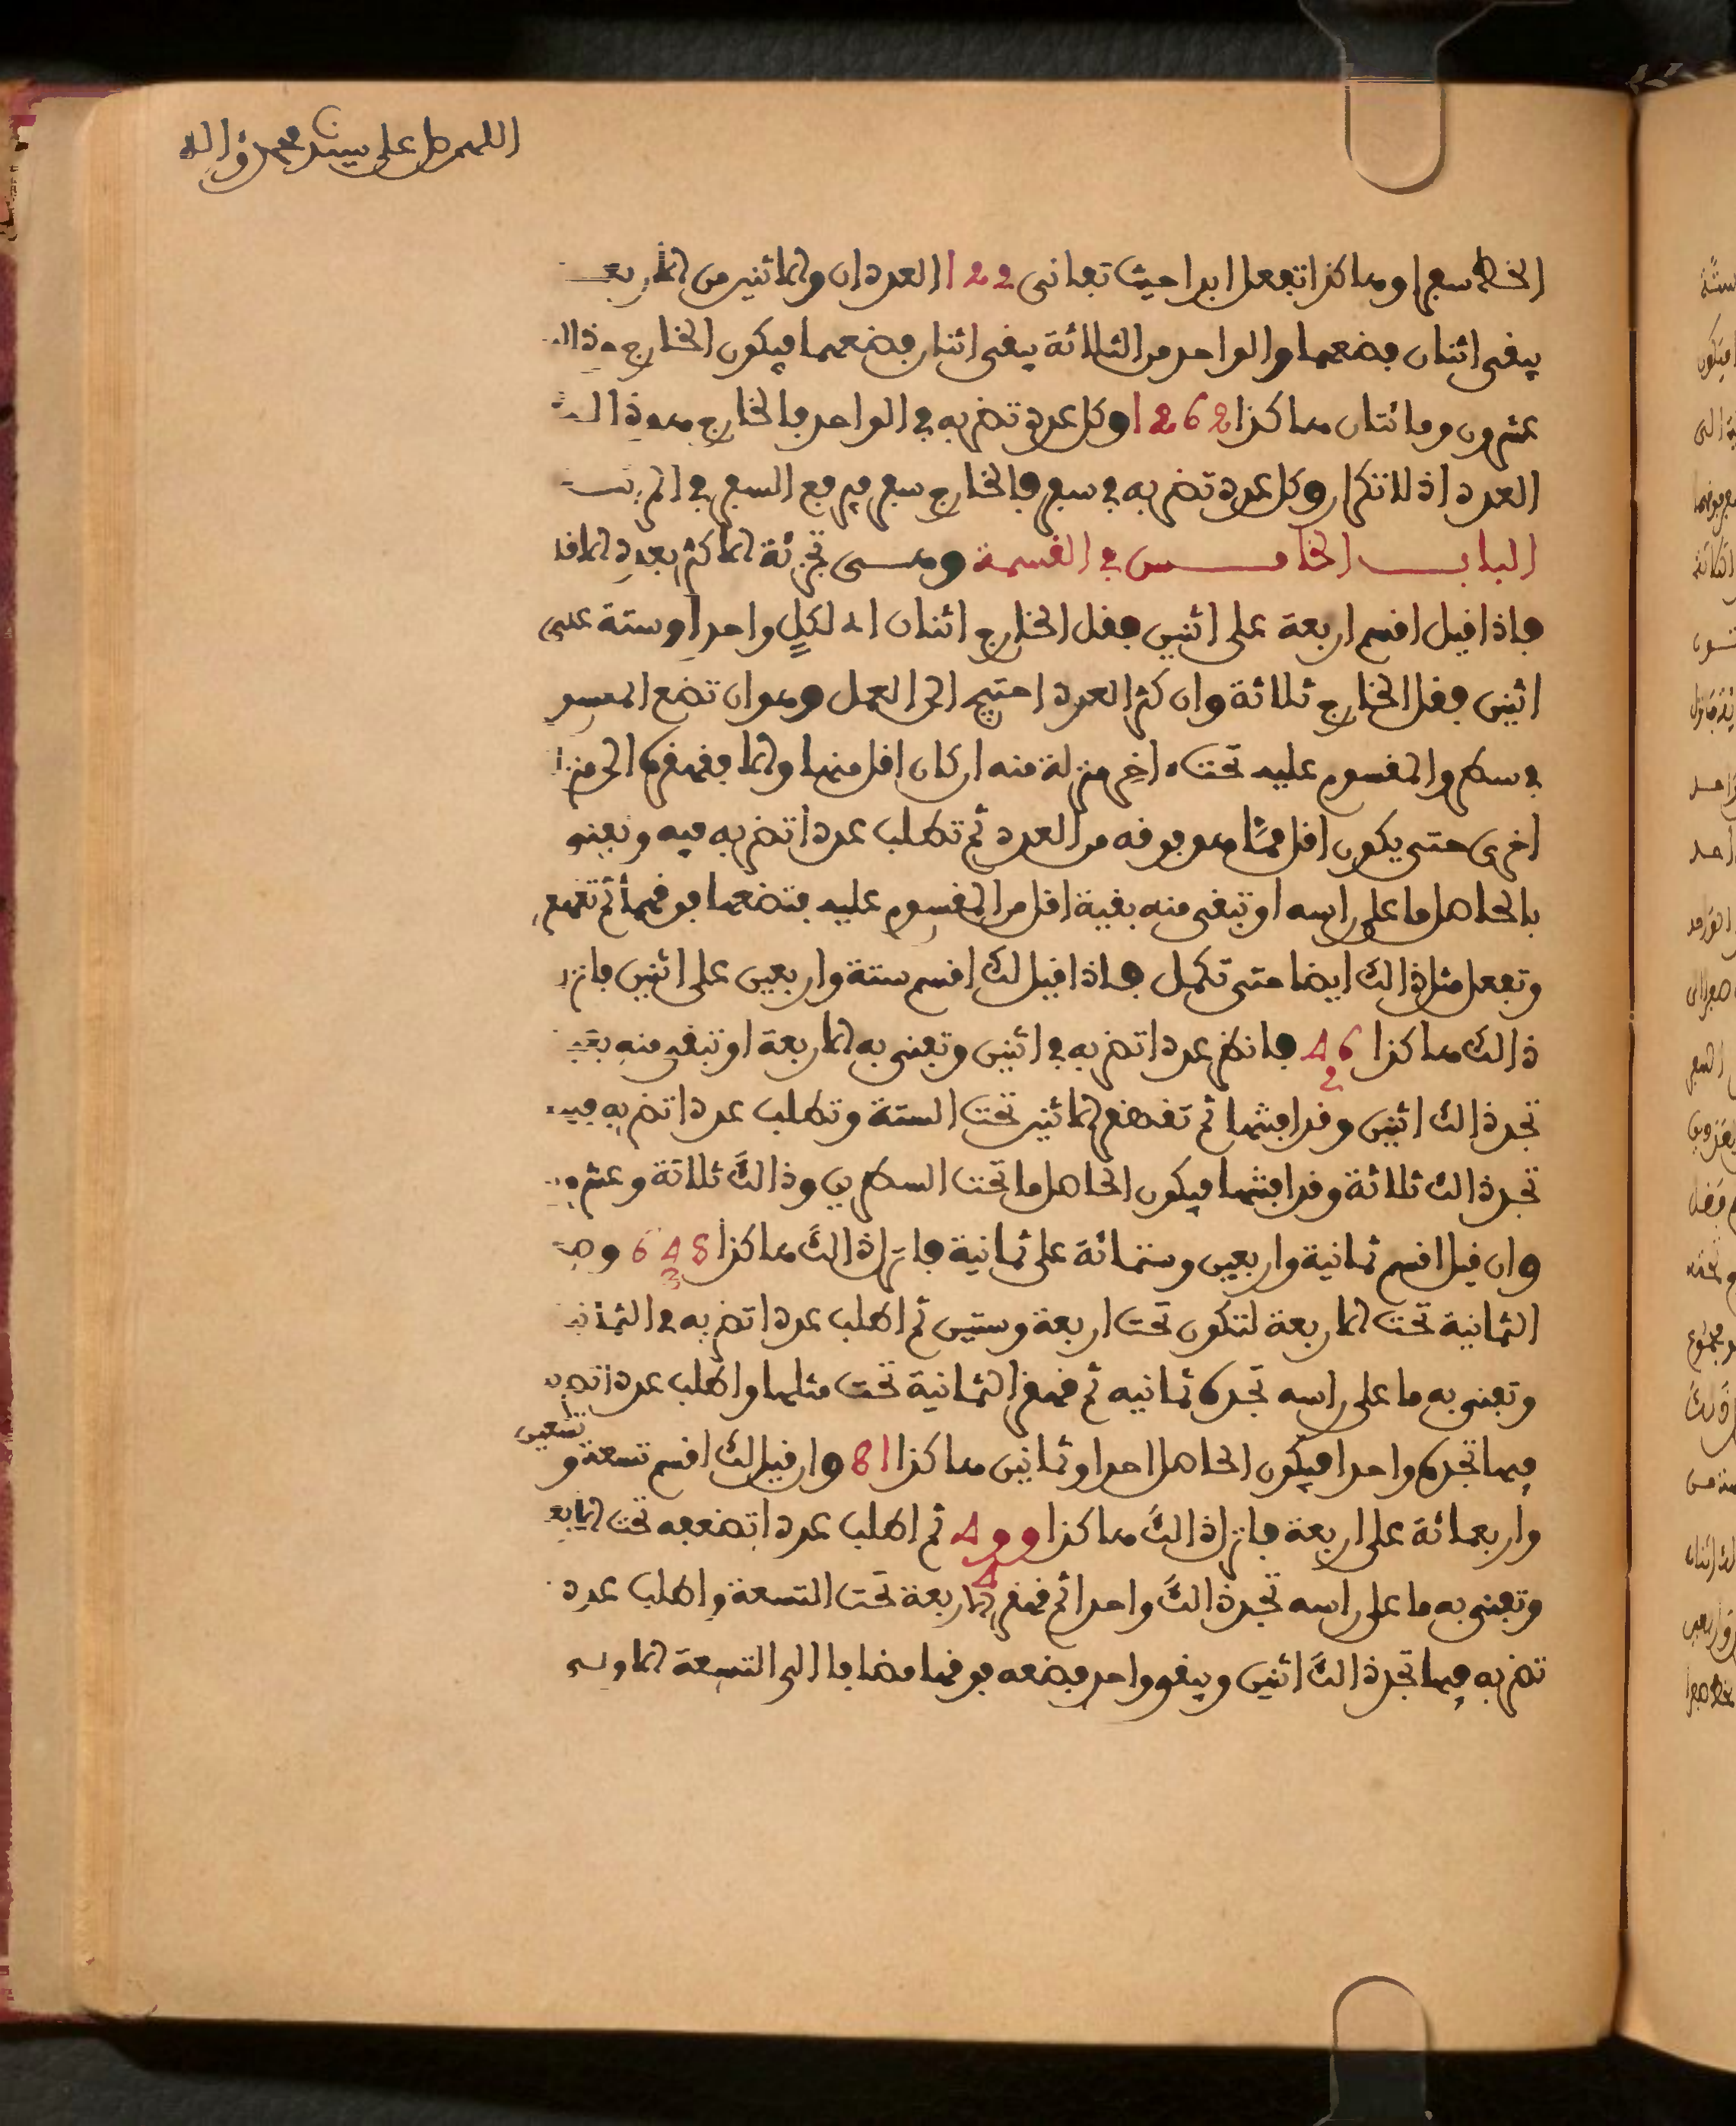 اللهم صل على سيدنا محمد وءاله
الخط سعرا وهاكذا تفعل ابدا حيث تفانى 122 العددان والاثنين من الاربعـ
يبقى اثنان فضعهما والواحد من الثلاثة يبقى اثنان فضعهما فيكون الخارج وذالك
عشرون ومائتان هاكذا 1262 وكل عدد تضربه في الواحد فالخارج هو ذالك
العدد اذ لا تكرار وكل عدد تضربه في سعر فالخارج سعر فيرفع السعر في المرتبـ
البـاب الخامـس في القسمة وهـي تجزئة الاكثر بعدد الاقل
فاذا قيل اقسم اربعة على اثنين فقل الخارج اثنان اذ لكل واحد او ستة على
اثنين فقل الخارج ثلاثة وان كثر العدد احتيج الى العمل وهو ان تضع المقسو
في سطر والمقسوم عليه تحت ءاخر منزلة منه ان كان اقل منها والا فقهقره الى منز
اخرى حتى يكون اقل مما هو فوقه من العدد ثم تطلب عددا تضربه فيه وتفنى
بالحاصل ما على راسه او تبقى منه بقية اقل من المقسوم عليه فتضعها فوقها ثم تقهقر
وتفعل مثل ذالك ايضا حتى تكمل فاذا قيل لك اقسم ستة واربعين على اثنين فانزل
ذالك هاكذا 46 فانظر عددا تضربه في اثنين وتفنى به الاربعة او تبقى منه بقيـ
2
تجد ذالك اثنين وقد افنتها ثم تقهقر الاثنين تحت الستة وتطلب عددا تضربه فيـ
تجد ذالك ثلاثة وقد افنتها فيكون الحاصل ما تحت السطرين وذالك ثلاثة وعشر
وان قيل اقسم ثمانية واربعين وستمائة على ثمانية فانزل ذالك هاكذا 648 وضـ
الثمانية تحت الاربعة لتكون تحت اربعة وستين ثم اطلب عددا تضربه في الثمانيـ
وتفنى به ما على راسه تجده ثمانيه ثم قهقر الثمانية تحت مثلها واطلب عددا تضربـ
فيها تجده واحدا فيكون الحاصل احدا وثمانين هاكذا 81 وان قيل لك اقسم تسعة و
تسعين
واربعمائة على اربعة فانزل ذالك هاكذا 499 ثم اطلب عددا تضعه تحت الاربعـ
4
وتفنى به ما على راسه تجد ذالك واحدا ثم قهقر الاربعة تحت التسعة واطلب عدد
تضربه فيها تجد ذالك اثنين ويبقى واحد فضعه فوقها مضافا الى التسعة الاولى